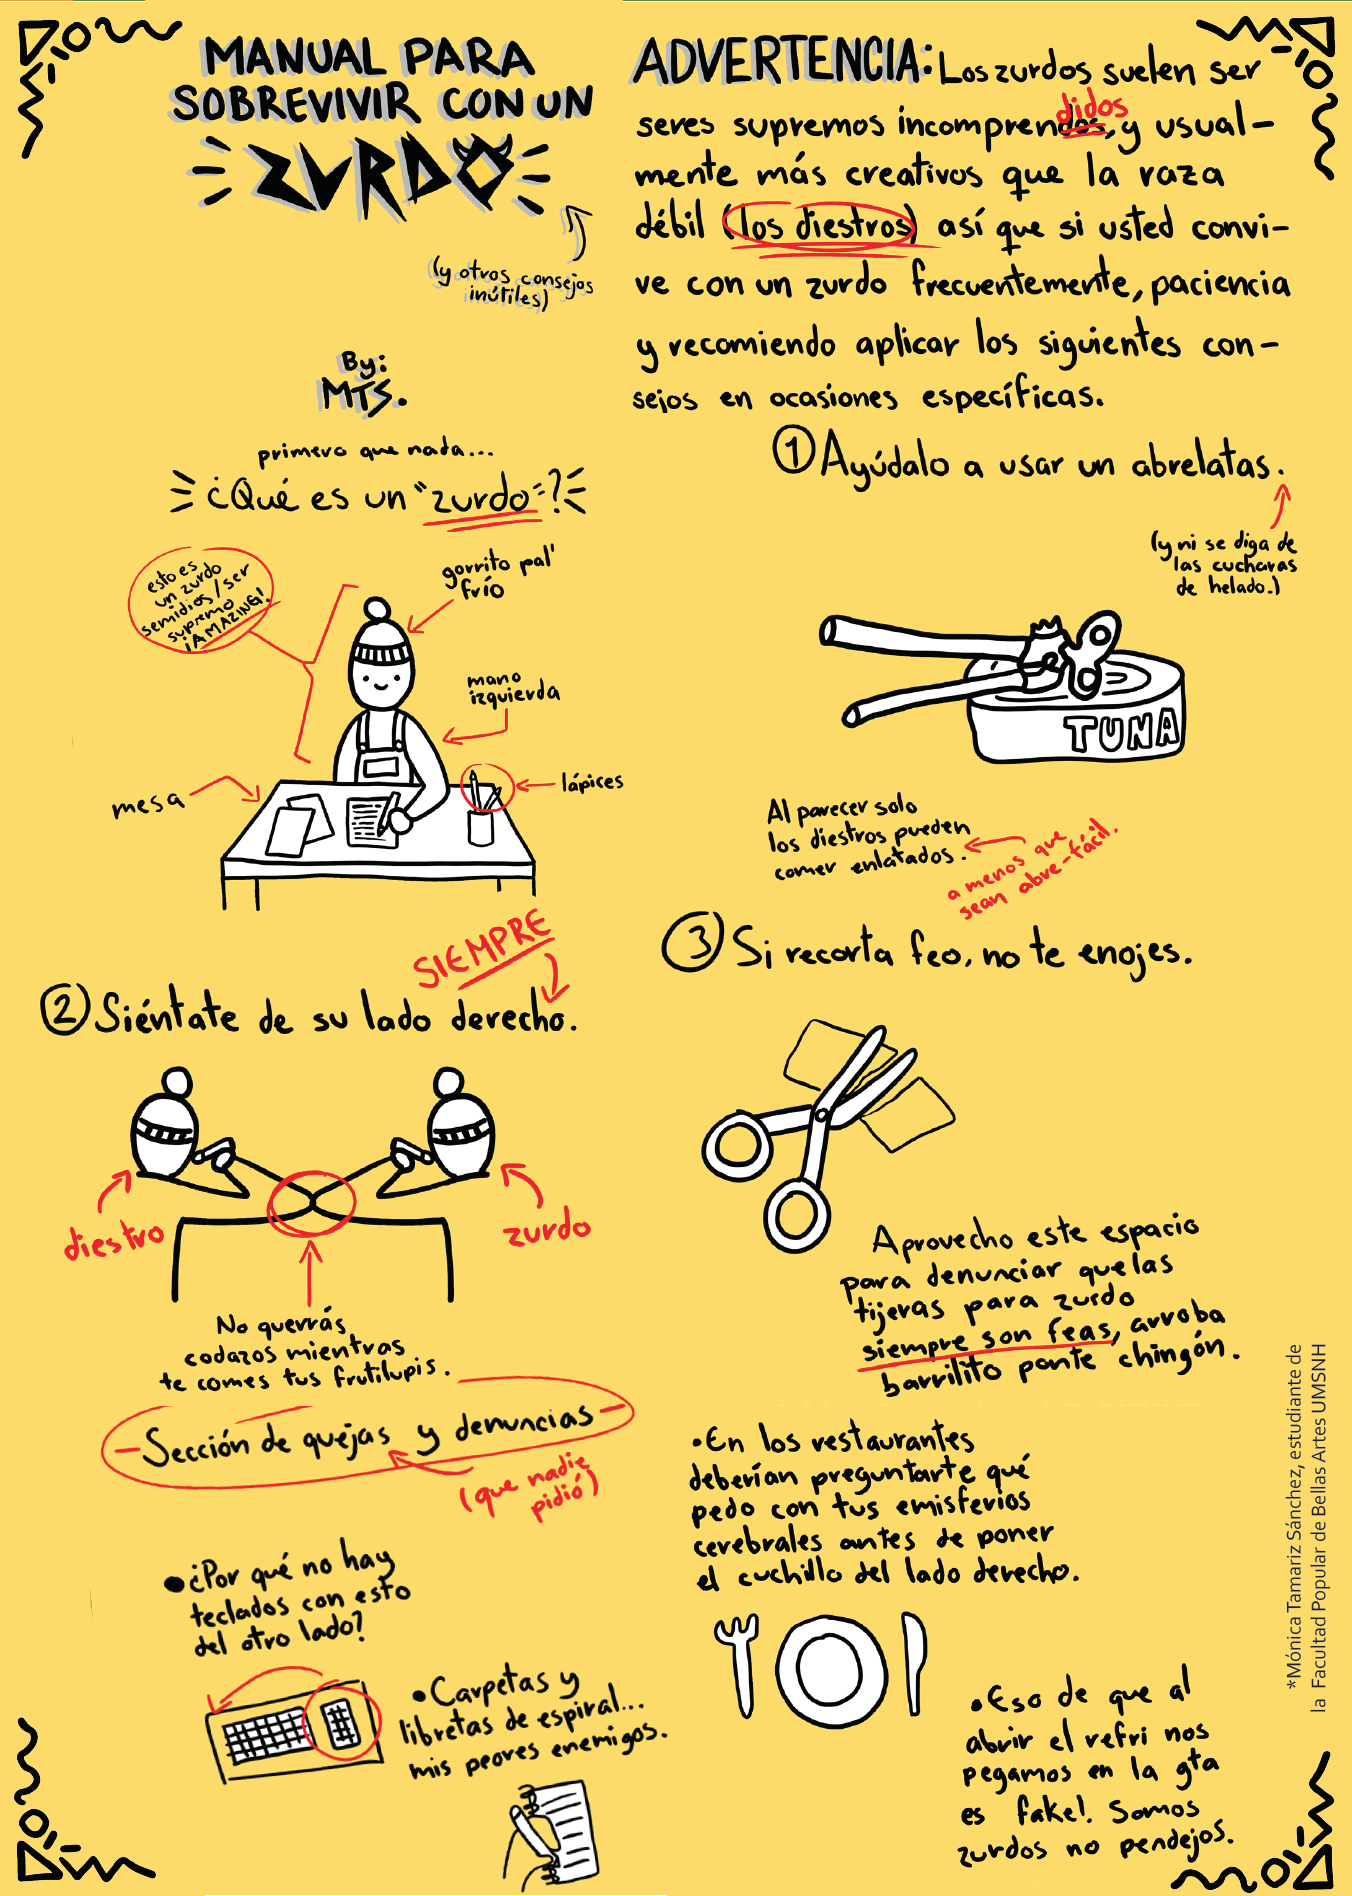 MANUAL PARA
SOBREVIVIR CON UN
ZURDO
(y otros consejos
inútiles)
By:
MTS.
ADVERTENCIA: Los zurdos suelen ser
didos
seres supremos incomprendos, y usual-
mente más creativos que la raza
débil (los diestros) así que si usted convi-
ve con un zurdo frecuentemente, paciencia
y recomiendo aplicar los siguientes con-
sejos en ocasiones específicas.
primero que nada...
¿Qué es un "zurdo"?
esto es
un zurdo
semidios/ser
supremo
¡AMAZING!
gorrito pal'
frío
mano
izquierda
lápices
mesa
① Ayúdalo a usar un abrelatas.
(y ni se diga de
las cucharas
de helado.)
TUNA
Al parecer solo
los diestros pueden
comer enlatados.
a menos que
sean abre-fácil.
SIEMPRE
② Siéntate de su lado derecho.
diestro
zurdo
No querrás
codazos mientras
te comes tus frutilupis.
③ Si recorta feo, no te enojes.
Aprovecho este espacio
para denunciar que las
tijeras para zurdo
siempre son feas, arroba
barrilito ponte chingón.
-Sección de quejas y denuncias-
(que nadie
pidió)
•¿Por qué no hay
teclados con esto
del otro lado?
•Carpetas y
libretas de espiral...
mis peores enemigos.
•En los restaurantes
deberían preguntarte qué
pedo con tus emisferios
cerebrales antes de poner
el cuchillo del lado derecho.
•Eso de que al
abrir el refri nos
pegamos en la jta
es fake! Somos
zurdos no pendejos.
*Mónica Tamariz Sánchez, estudiante de
la Facultad Popular de Bellas Artes UMSNH